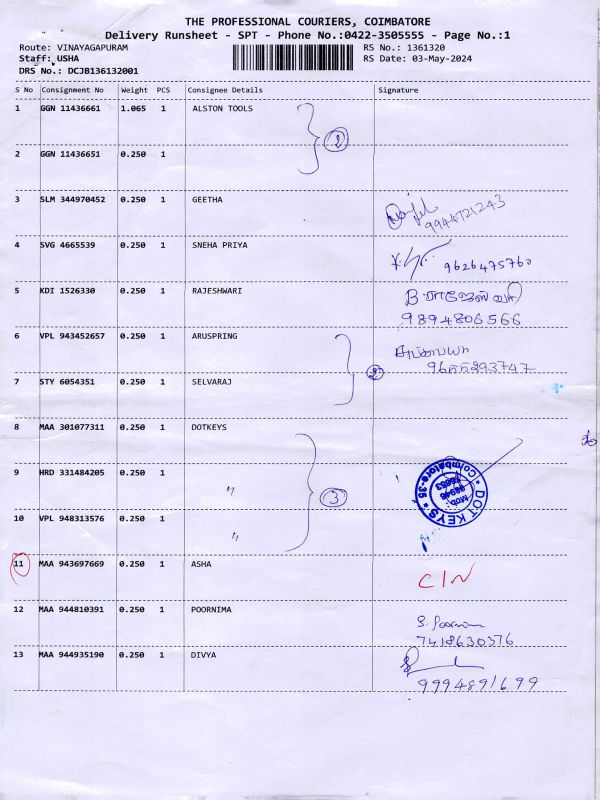 THE PROFESSIONAL COURIERS, COIMBATORE
Delivery Runsheet - SPT - Phone No.:0422-3505555 - Page No.:1
Route: VINAYAGAPURAM RS No.: 1361320
Staff: USHA RS Date: 03-May-2024
DRS No.: DCJB136132001
S No Consignment No Weight PCS Consignee Details Signature
1 GGN 11436661 1.065 1 ALSTON TOOLS
2
2 GGN 11436651 0.250 1
3 SLM 344970452 0.250 1 GEETHA
9944721243
4 SVG 4665539 0.250 1 SNEHA PRIYA
9626475760
5 KDI 1526330 0.250 1 RAJESHWARI
B. ராஜேஸ்வரி
9894806566
6 VPL 943452657 0.250 1 ARUSPRING
2
7 STY 6054351 0.250 1 SELVARAJ
8 MAA 301077311 0.250 1 DOTKEYS
9 HRD 331484205 0.250 1 〃
3
DOT KEYS
Coimbatore-35
Mob:
10 VPL 948313576 0.250 1 〃
11 MAA 943697669 0.250 1 ASHA
CIN
12 MAA 944810391 0.250 1 POORNIMA
S. Poornima
7418630376
13 MAA 944935190 0.250 1 DIVYA
9994891699